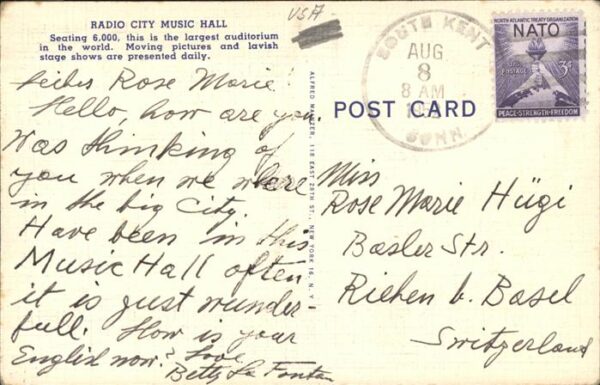 USA
RADIO CITY MUSIC HALL
Seating 6,000, this is the largest auditorium
in the world. Moving pictures and lavish
stage shows are presented daily.
Rose Marie!
Hello, how are you.
Was thinking of
you when we where
in the big City.
Have been in this
Music Hall often
it is just wunder-
full. How is your
English now? Love
Betty La
ALFRED MAINZER, 118 EAST 28TH ST., NEW YORK 16, N. Y.
SOUTH KENT
AUG
8
8 AM
CONN.
NORTH ATLANTIC TREATY ORGANIZATION
NATO
U.S. POSTAGE 3¢
PEACE-STRENGTH-FREEDOM
POST CARD
Miss
Rose Marie Hügi
Basler Str.
Riehen b. Basel
Switzerland